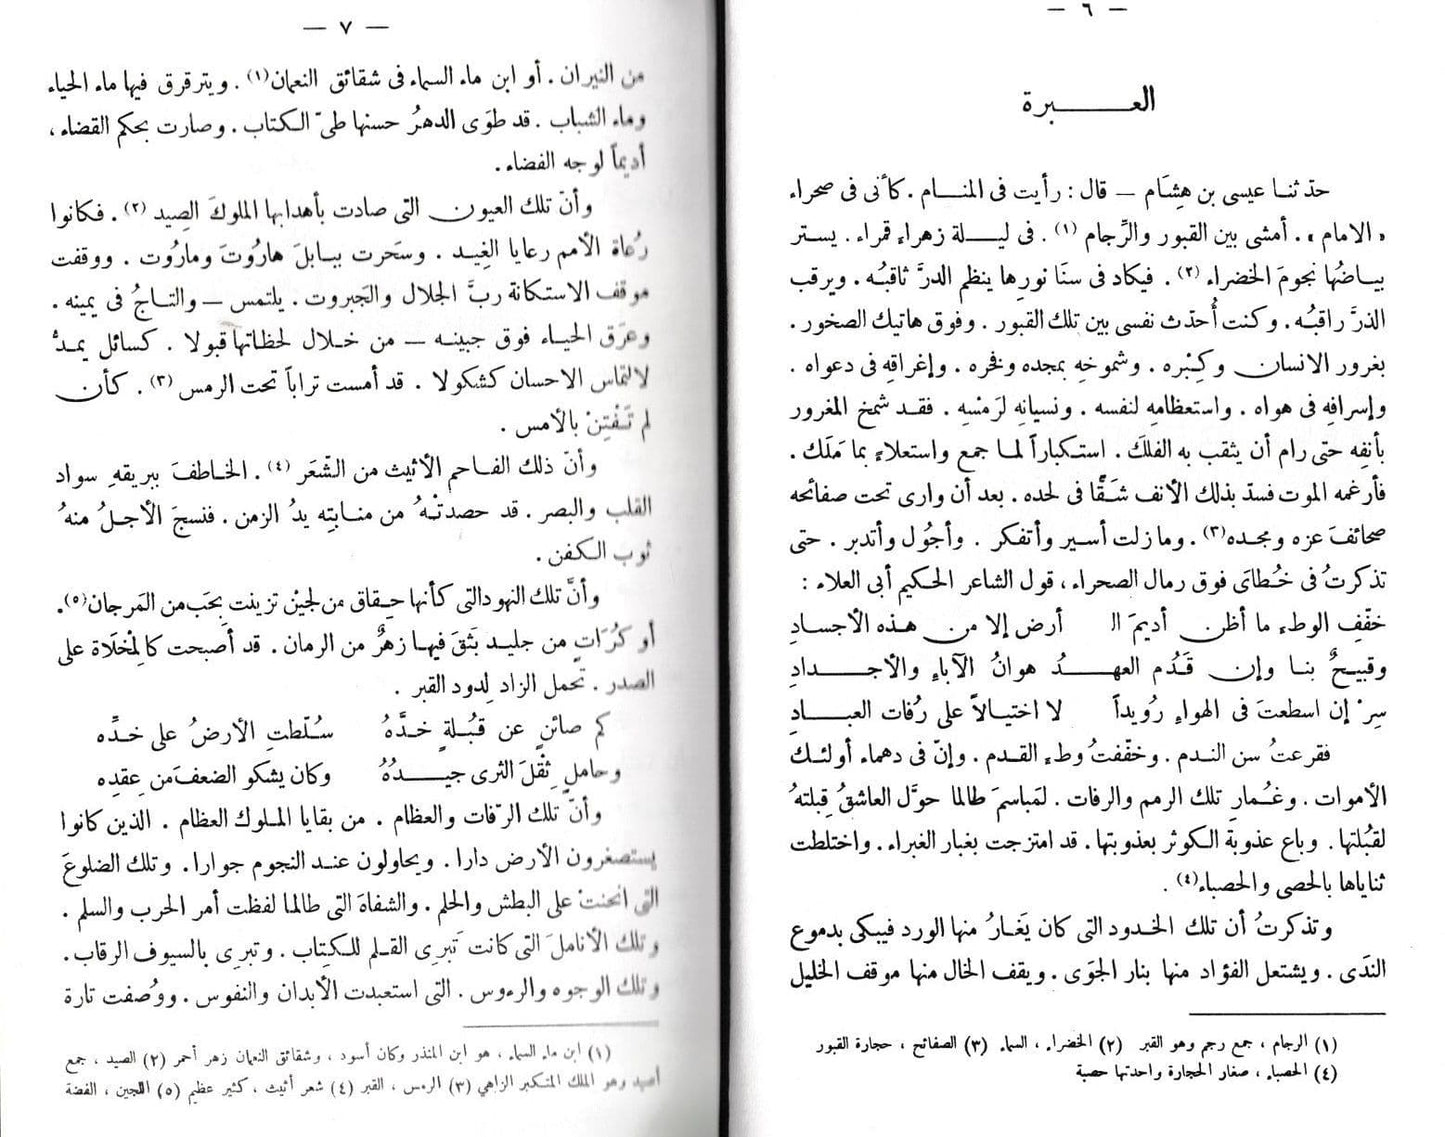 — ٦ —
العـــــبرة
حدثنا عيسى بن هِشَام — قال : رأيت فى المنـام . كأنى فى صحراء
« الامام » . أمشى بين القبور والرِّجام (١) . فى ليــلة زهراء قمراء . يستر
بياضُها نجومَ الخضراء (٢) . فيكاد فى سنَا نورِها ينظم الدرَّ ثاقبُـه . ويرقب
الذرَّ راقبُـه . وكنت أُحدث نفسى بين تلك القبور . وفوق هاتيك الصخور .
بغرور الانسان وكِبْره . وشموخهِ بمجده وفخره . وإغراقهِ فى دعواه .
وإسرافهِ فى هواه . واستعظامهِ لنفسه . ونسيانهِ لرَمْسِه . فقـد شمخ المغرور
بأنفِه حتى رام أن يثقب به الفلكَ . استكباراً لمـا جمع واستعلاءً بما مَلَك .
فأرغمه الموت فسدّ بذلك الأنف شَقًّا فى لحده . بعد أن وارى تحت صفائحه
صحائفَ عزه ومجده(٣) . وما زلت أسير وأتفكر . وأجُول وأتدبر . حتى
تذكرتُ فى خُطاىَ فوق رمال الصحراء ، قول الشاعر الحكيم أبى العلاء :
خفّفِ الوطء ما أظن أديمَ الـ أرض إلا من هـذه الأجسـادِ
وقبيـحٌ بنـا وإن قَدُم العهـــدُ هوانُ الآباءِ والأجـــدادِ
سِرْ إن اسطعتَ فى الهواءِ رُويداً لا اختيالاً على رُفات العبـــادِ
فقرعتُ سن الندم . وخفّفتُ وطء القدم . وإنّ فى دهماء أولئـك
الأموات . وغُمارِ تلك الرمم والرفات . لمَباسمَ طالما حوَّل العاشقُ قِبلتهُ
لقبُلتها . وباع عذوبة الكوثر بعذوبتها . قد امتزجت بغبار الغبراء . واختلطت
ثناياها بالحصى والحصباء(٤) .
وتذكرتُ أن تلك الخدود التى كان يَغارُ منها الورد فيبكى بدموع
الندَى . ويشتعل الفؤاد منها بنار الجوَى . ويقف الخال منها موقف الخليل
(١) الرجام ، جمع رجم وهو القبر (٢) الخضراء ، السماء (٣) الصفائح ، حجارة القبور
(٤) الحصباء ، صغار الحجارة واحدتها حصبة
— ٧ —
من النيران . أو ابن ماء السماء فى شقائق النعمان(١) . ويترقرق فيها ماء الحياء
وماء الشباب . قد طوَى الدهرُ حسنها طىّ الكتاب . وصارت بحكم القضاء ،
أديماً لوجه الفضاء .
وأنّ تلك العيون التى صادت بأهدابها الملوكَ الصِيد (٢) . فكانوا
رُعاة الأمم رعايا الغِيـد . وسَحرت ببـابلَ هارُوتَ ومارُوت . ووقفت
موقف الاستكانة ربَّ الجلال والجَبروت . يلتمس — والتاجُ فى يمينه .
وعرَق الحيـاء فوق جبينـه — من خـلال لحظاتها قبولا . كسائل يمـدُّ
لالتماس الاحسان كشكولا . قد أمست تراباً تحت الرمس (٣) . كأن
لم تَفْتِنْ بالأمس .
وأنّ ذلك الفـاحم الأثيث من الشّعَر (٤) . الخـاطفَ ببريقهِ سواد
القلب والبصر . قد حصدتْـهُ من منـابتِه يدُ الزمن . فنسجَ الأجـلُ منهُ
ثوب الكفن .
وأنَّ تلك النهود التى كأنها حِقاق من لجيْن تزينت بِحَب من المَرجان(٥).
أو كُرَاتٍ من جليـد بَثقَ فيهـا زهرٌ من الرمان . قد أصبحت كالمْخلَاة على
الصدر . تحمل الزاد لِدود القبر .
كم صائنٍ عن قُبـلةٍ خـدَّهُ سُـلّطتِ الأرضُ على خـدِّه
وحاملٍ ثِقْلَ الثرى جيـــدُهُ وكان يشكو الضعفَ من عِقدِه
وأنّ تلك الرّفات والعظام . من بقايا المـلوك العظام . الذين كانوا
يستصغرون الأرض دارا . ويحاولون عنـد النجوم جوارا . وتلك الضلوعَ
التى انحنتْ على البطش والحلم . والشفاهَ التى طالما لفظت أمر الحرب والسلم .
وتلك الأناملَ التى كانت تَبرِى القـلم للكِتاب . وتبرِى بالسيوف الرقاب .
وتلك الوجوه والرءوس . التى استعبدت الأبدان والنفوس . ووُصفت تارة
(١) ابن ماء السماء ، هو ابن المنذر وكان أسود ، وشقائق النعمان زهر أحمر (٢) الصيد ، جمع
أصيد وهو الملك المتكبر الزاهي (٣) الرمس ، القبر (٤) شعر أثيث ، كثير عظيم (٥) اللجين ، الفضة